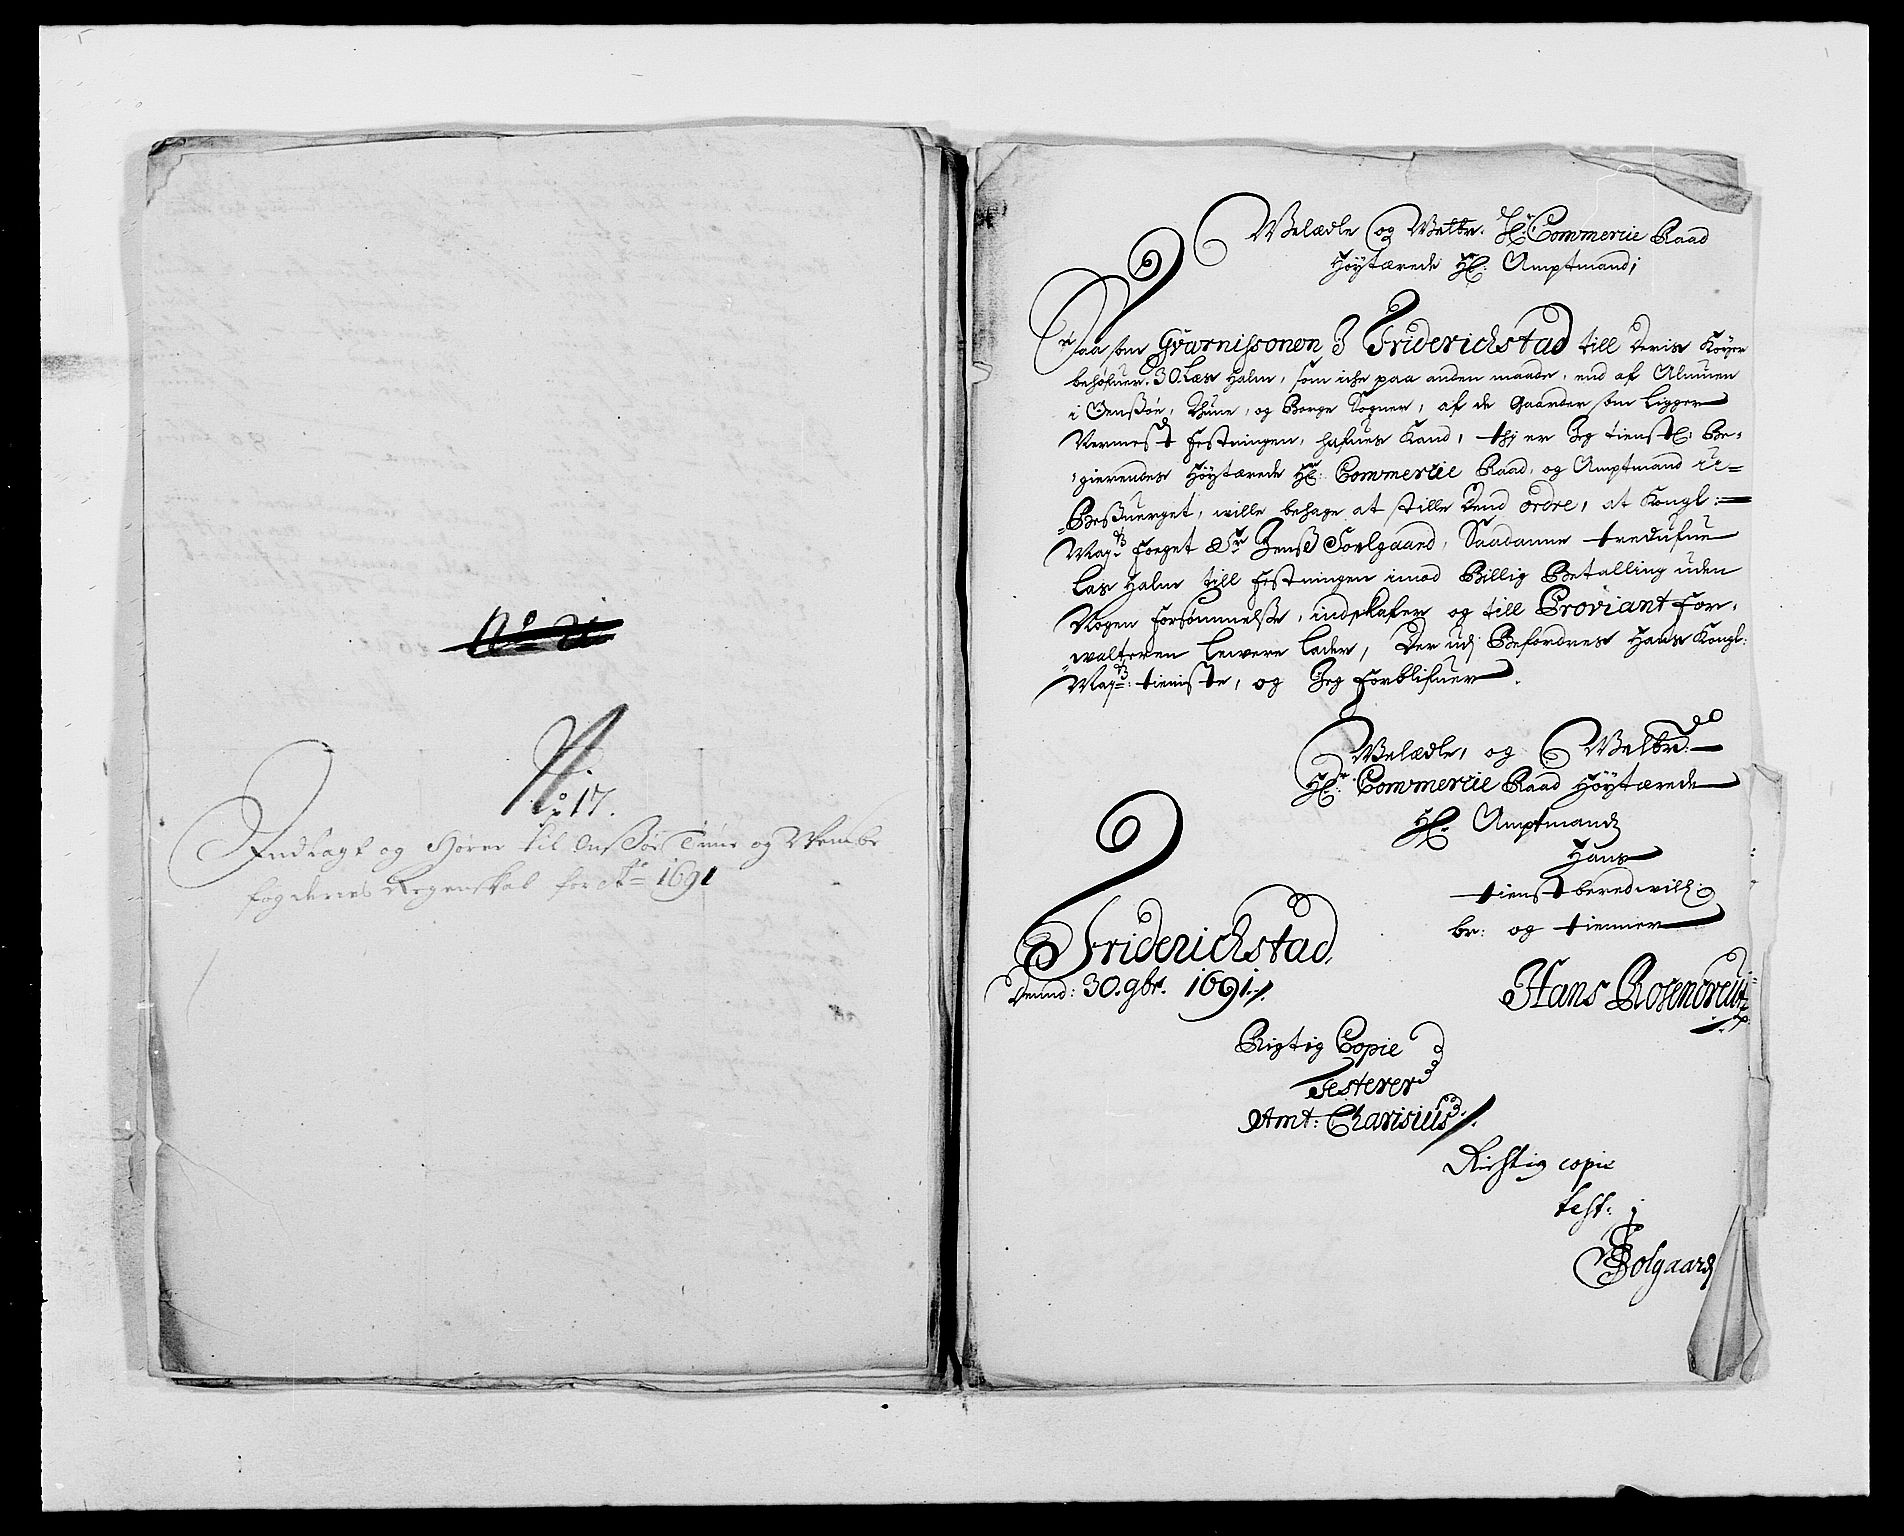 No 17.
Indlagt og Hører til Onsøe Tune og Wembe
fogderies Regenskab for Ao 1691
Welædle og Welbr. Hr: Commercie Raad
Høytærede Hr: Amptmand;
Saasom Gvarnissonen I Friderichstad till deris Køyer
behøfuer 30. Læs Halm, som iche paa anden maade, end af Almuen
i Onssøe, Thune, og Borge Sogner, af de Gaarder som Ligger
Nermest Festningen, hafues Kand, thj er Jeg tienstl: Be-
gierendes Høytærede Hr: Commercie Raad, og Amptmand U-
Besuerget, wille behage at stille Dend ordre, at Kongl:
Mayts Foeget Sr Jenss Soelgaard, Saadanne tredufue
Las Halm till Festningen imod Billig Betalling uden
Nogen Forsømmelsse, indskafer og till Proviant For-
walteren Lewere Lader, Der udj Befordres Hans Kongl:
Mayts: tieniste, og Jeg Forblifuer
Welædle, og Welbrd:
Hr: Commercie Raad Høytærede
Hr. Amptmands
Hans
tienstberedwill:
br: og tienner
Friderichstad,
Dennd: 30. 9br. 1691.
Hans Rosencreutz
Rigtig Copie
Testerer
Amt: Charisius
Richtig copie
test:
JSolgaard